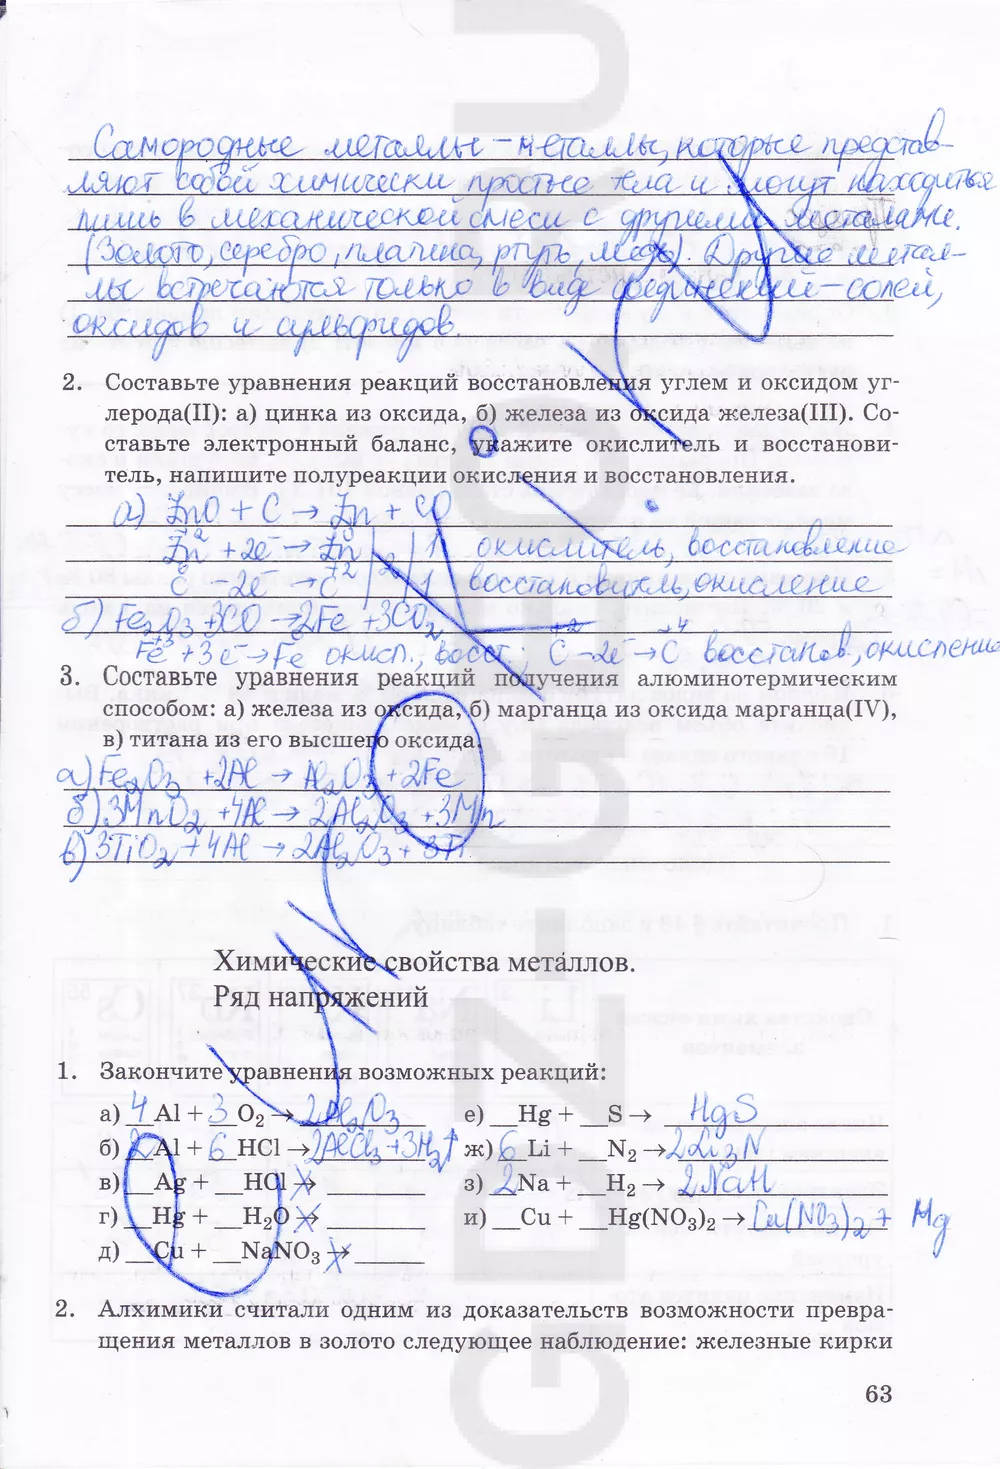 Самородные металлы – металлы, которые представ-
ляют собой химически простые тела и могут находиться
лишь в механической смеси с другими металлами.
(Золото, серебро, платина, ртуть, медь). Другие метал-
лы встречаются только в виде соединений – солей,
оксидов и сульфидов.
2. Составьте уравнения реакций восстановления углем и оксидом уг-
лерода(II): а) цинка из оксида, б) железа из оксида железа(III). Со-
ставьте электронный баланс, укажите окислитель и восстанови-
тель, напишите полуреакции окисления и восстановления.
а) ZnO + C → Zn + CO
Zn+2 + 2e- → Zn0 | 2 | 1 окислитель, восстановление
C0 – 2e- → C+2 | 2 | 1 восстановитель, окисление
б) Fe2O3 + 3CO → 2Fe + 3CO2
Fe+3 + 3e- → Fe0 окисл., восст.; C+2 – 2e- → C+4 восстанов., окисление
3. Составьте уравнения реакций получения алюминотермическим
способом: а) железа из оксида, б) марганца из оксида марганца(IV),
в) титана из его высшего оксида.
а) Fe2O3 + 2Al → Al2O3 + 2Fe
б) 3MnO2 + 4Al → 2Al2O3 + 3Mn
в) 3TiO2 + 4Al → 2Al2O3 + 3Ti
Химические свойства металлов.
Ряд напряжений
1. Закончите уравнения возможных реакций:
а) 4Al + 3O2 → 2Al2O3 е) __Hg + __S → HgS
б) 2Al + 6HCl → 2AlCl3 + 3H2↑ ж) 6Li + __N2 → 2Li3N
в) __Ag + __HCl → ______ з) 2Na + __H2 → 2NaH
г) __Hg + __H2O → ______ и) __Cu + __Hg(NO3)2 → Cu(NO3)2 + Hg
д) __Cu + __NaNO3 → ______
2. Алхимики считали одним из доказательств возможности превра-
щения металлов в золото следующее наблюдение: железные кирки
63
GDZ-GURU